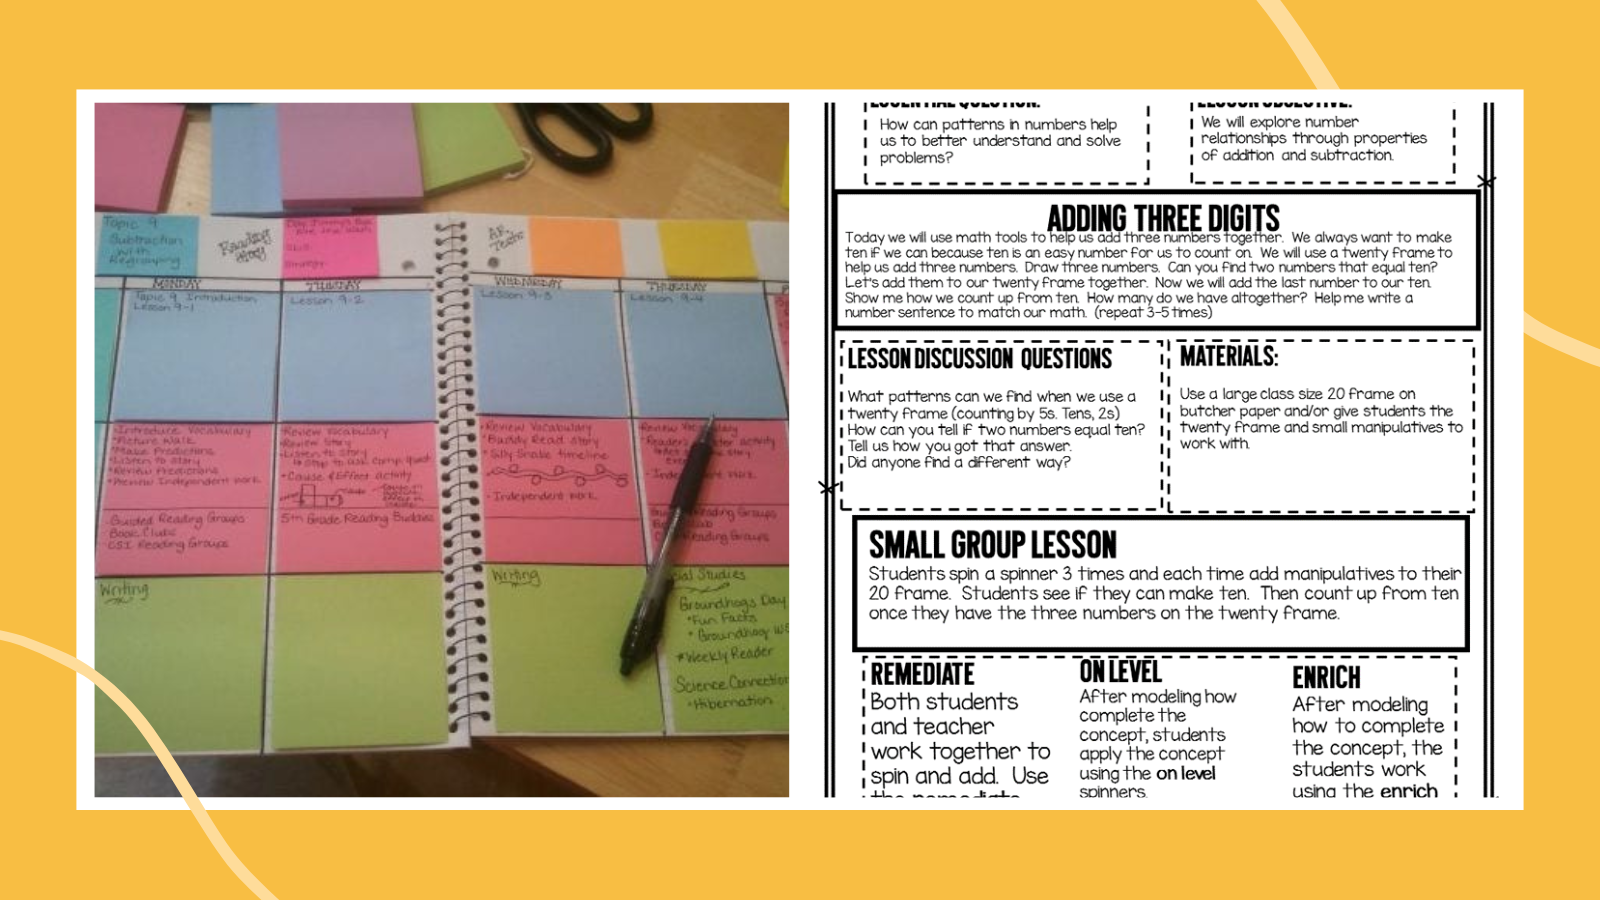 Topic 9
Subtraction
with
Regrouping
Reading
Story
AR
Tests
MONDAY
TUESDAY
WEDNESDAY
THURSDAY
Topic 9 Introduction
Lesson 9-1
Lesson 9-2
Lesson 9-3
Lesson 9-4
• Introduce Vocabulary
• Picture Walk
• Make Predictions
• Listen to Story
• Review Predictions
• Preview Independent Work
• Review Vocabulary
• Review Story
• Listen to Story
• Cause & Effect activity
• Review Vocabulary
• Buddy Read story
• Silly Snake timeline
• Independent Work
• Review
activity
Work
Guided Reading Groups
Book Clubs
CSI Reading Groups
5th Grade Reading Buddies
Reading Groups
Reading Groups
Writing
Writing
Social Studies
Groundhogs Day
• Fun Facts
• Groundhog
* Weekly Reader
Science Connection
• Hibernation
ESSENTIAL QUESTION:
How can patterns in numbers help
us to better understand and solve
problems?
LESSON OBJECTIVE:
We will explore number
relationships through properties
of addition and subtraction.
ADDING THREE DIGITS
Today we will use math tools to help us add three numbers together. We always want to make
ten if we can because ten is an easy number for us to count on. We will use a twenty frame to
help us add three numbers. Draw three numbers. Can you find two numbers that equal ten?
Let's add them to our twenty frame together. Now we will add the last number to our ten.
Show me how we count up from ten. How many do we have altogether? Help me write a
number sentence to match our math. (repeat 3-5 times)
LESSON DISCUSSION QUESTIONS
What patterns can we find when we use a
twenty frame (counting by 5s. Tens, 2s)
How can you tell if two numbers equal ten?
Tell us how you got that answer.
Did anyone find a different way?
MATERIALS:
Use a large class size 20 frame on
butcher paper and/or give students the
twenty frame and small manipulatives to
work with.
SMALL GROUP LESSON
Students spin a spinner 3 times and each time add manipulatives to their
20 frame. Students see if they can make ten. Then count up from ten
once they have the three numbers on the twenty frame.
REMEDIATE
Both students
and teacher
work together to
spin and add. Use
the remediate
ON LEVEL
After modeling how
complete the
concept, students
apply the concept
using the on level
spinners.
ENRICH
After modeling
how to complete
the concept, the
students work
using the enrich